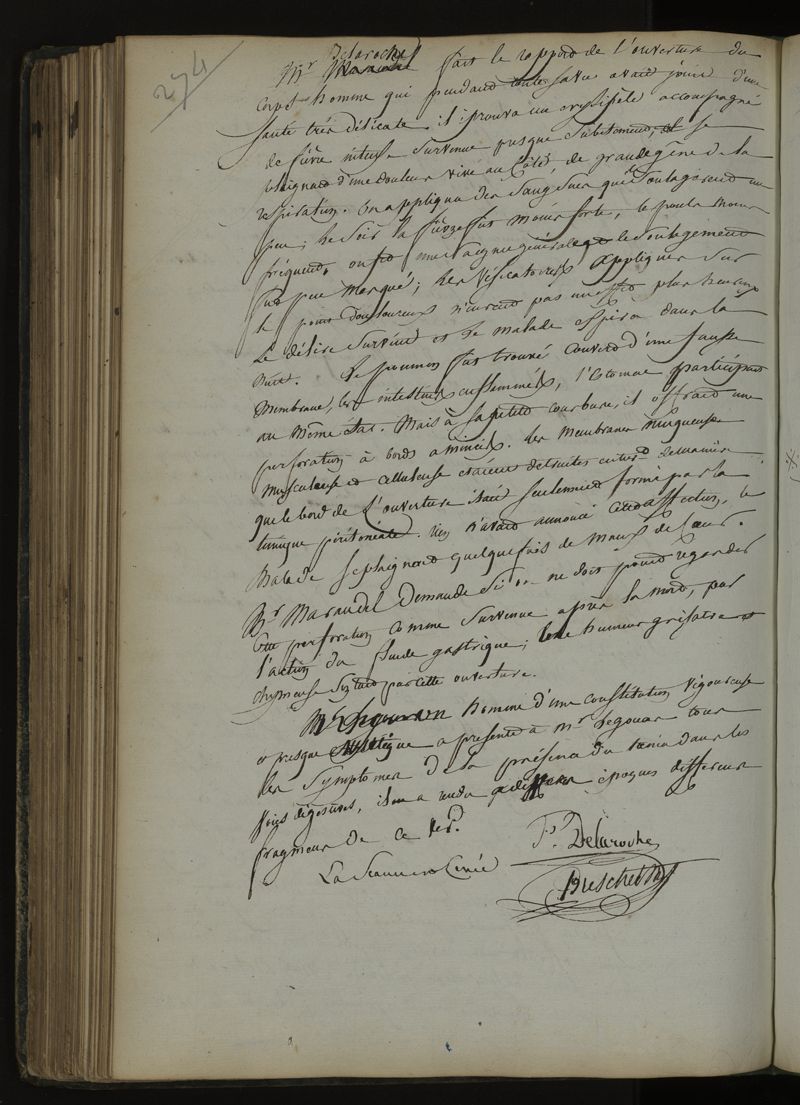 274
Delaroche
Mr fait le rapport de l'ouverture du
corps homme qui pendant toute sa vie avait joui d'une
santé très délicate il éprouva un erysipèle accompagné
de fièvre intense survenue presque subitement, et se
plaignait d'une douleur vive au côté, de grande gêne de la
respiration. On appliqua des sangsues qui soulagerent un
peu; le soir la fièvre fut moins forte, le pouls moins
fréquent, on fit une saignée générale, le soulagement
fut peu marqué; les vésicatoires appliqués sur
le point douloureux n'eurent pas un effet plus heureux
le délire survint et le malade expira dans la
nuit. Le poumon fut trouvé couvert d'une fausse
membrane, les intestins enflammés, l'estomac participait
au même état. Mais à sa petite courbure, il offrait une
perforation à bords amincis. Les membranes muqueuse
musculeuse et celluleuse étaient détruites de manière
que le bord de l'ouverture était seulement formé par la
tunique péritonéale. rien n'avait annoncé cette affection, le
malade se plaignait quelquefois de maux de cœur.
Mr Marandel demande si on ne doit point regarder
cette perforation comme survenue après la mort, par
l'action du fluide gastrique; humeur grisatre et
chymeuse par cette ouverture.
homme d'une constitution vigoureuse
et presque a presenté à Mr Segouin tous
les symptomes de la présence du taenia dans les
voies digestives, il en a rendu à époques différentes
fragmens de ce ver.
La Séance est levée
F. Delaroche
Breschet